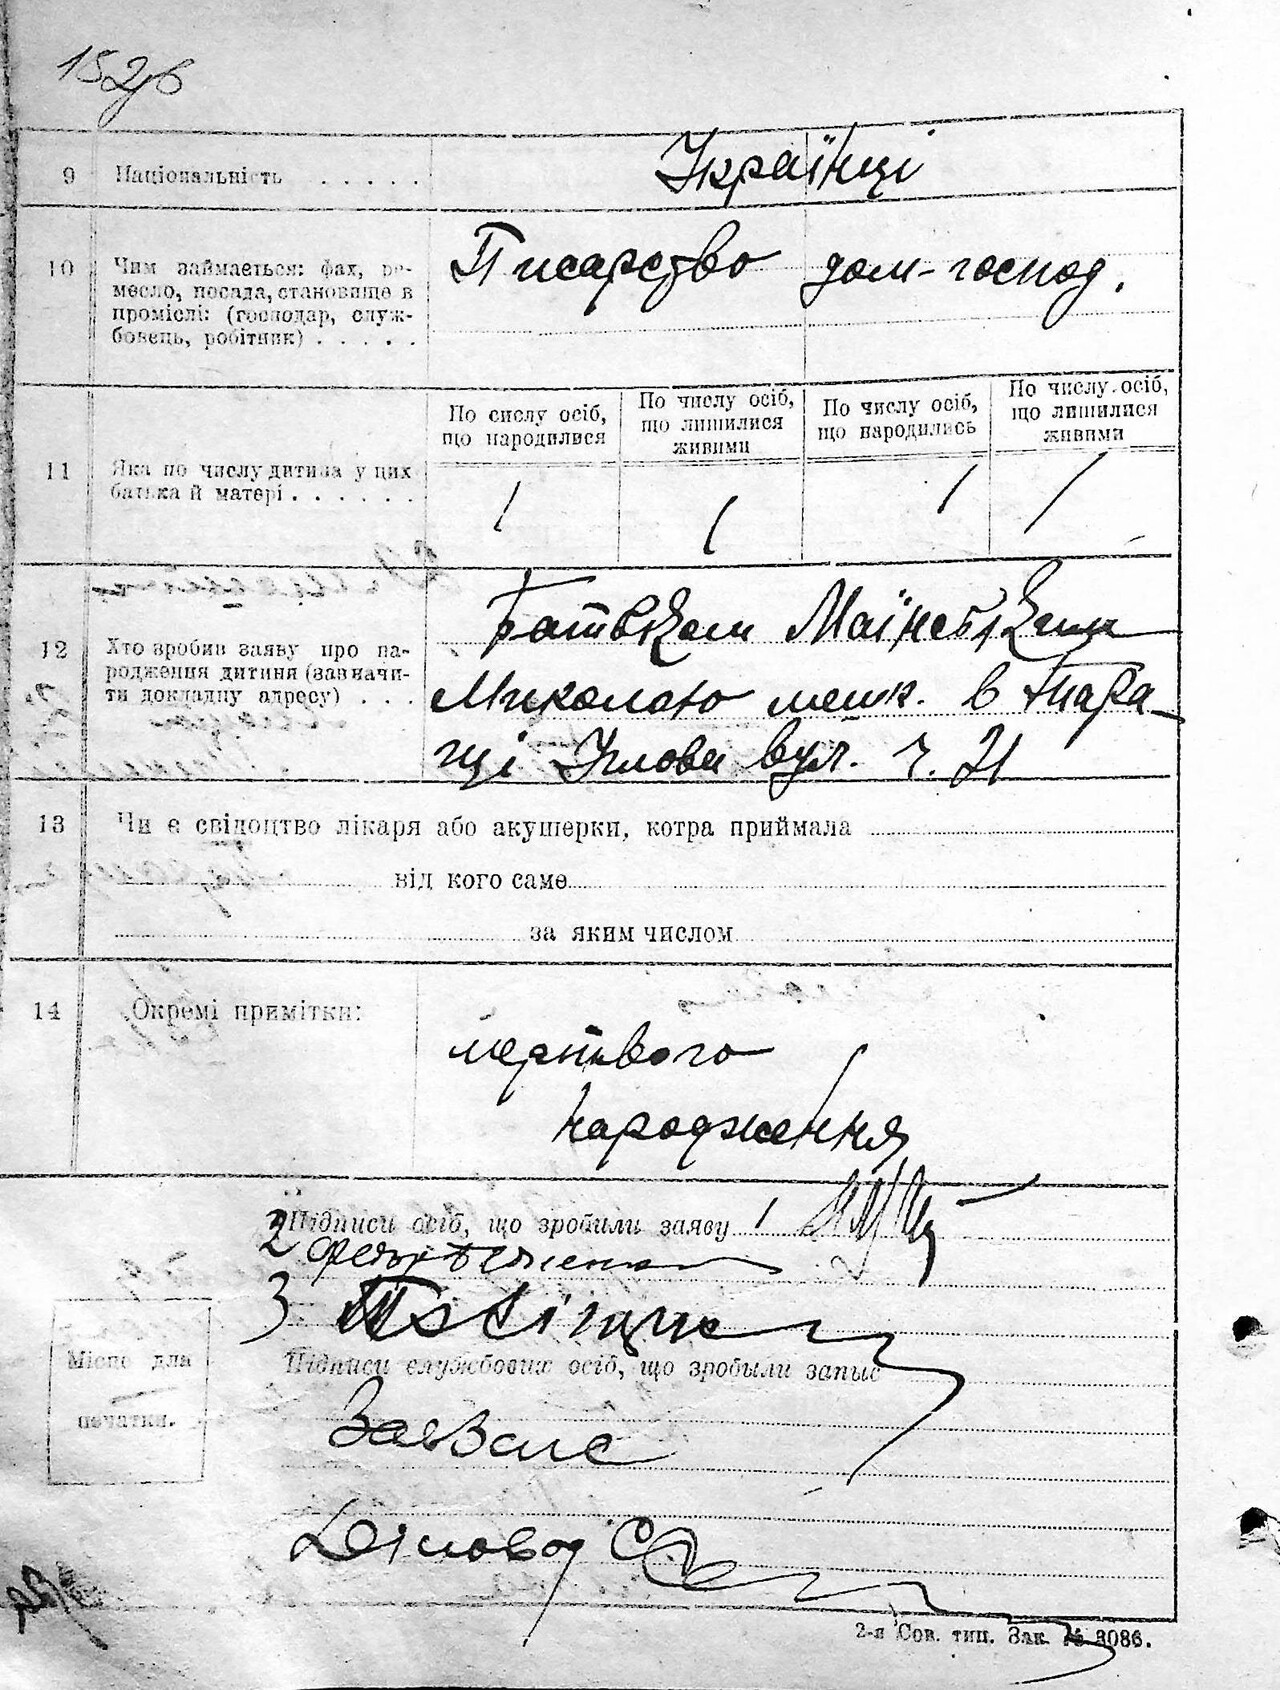 152зв
9 Національність . . . . . Українці
10 Чим займається: фах, ре-
месло, посада, становище в
проміслі: (господар, служ-
бовець, робітник) . . . . .
Писарство дом-господ.
11 Яка по числу дитина у цих
батька й матері . . . . . .
По сислу осіб,
що народилися
По числу осіб,
що лишилися
живими
По числу осіб,
що народились
По числу осіб,
що лишилися
живими
1 1 1 1
12 Хто зробив заяву про на-
родження дитини (зазначи-
ти докладну адресу) . . .
Батьком
Миколаю мешк. в Тара-
щі вул. ч. 21
13 Чи є свідоцтво лікаря або акушерки, котра приймала
від кого саме
за яким числом
14 Окремі примітки:
мертвого
народження
Підписи осіб, що зробили заяву 1
2
3
Підписи службових осіб, що зробыли запыс
Місце для
печатки.
ЗавЗагс
Діловод
2-я Сов. тип. Зак. № 3086.